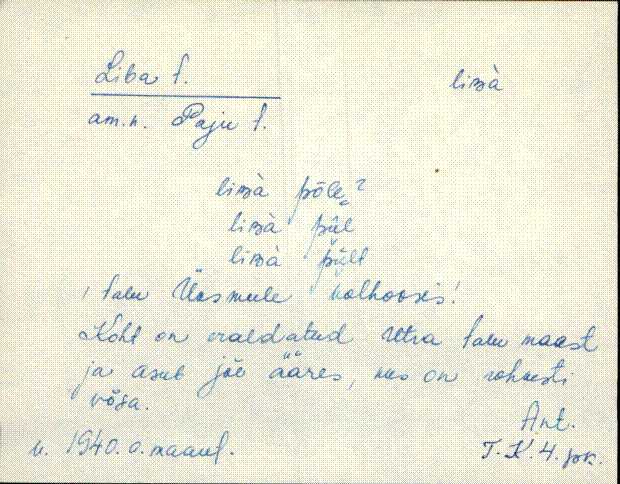 Liba t. liʙà
am.n. Paju t.
liʙà põle?
liʙà pǖl
liʙà pǖlt
, talu Üüsmule kolhoosis!
Koht on eraldatud Utra talu maast
ja asub jõe ääres, kus on rohkesti
võsa.
Ant.
u. 1940. a. maauf. T. K. 4. jsk.